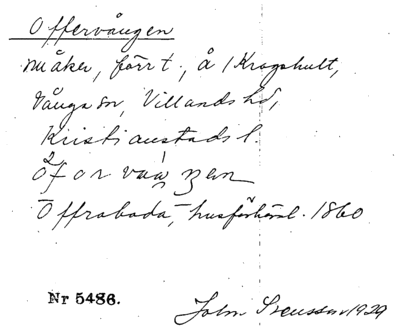 Offervången
nu åker, förr t., å 1 Kragshult,
Vånga sn, Villands hd,
Kristianstads l.
Offrabada, husförhörsl. 1860
Nr 5486.
John Svensson 1929